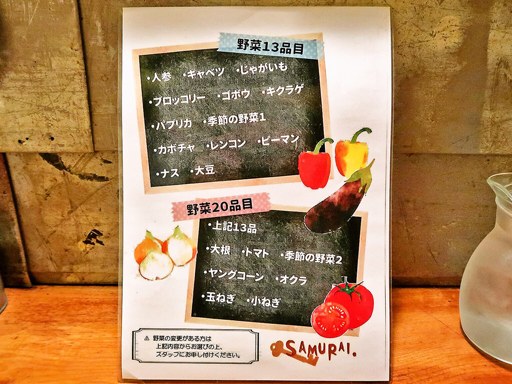 野菜13品目
・人参 ・キャベツ ・じゃがいも
・ブロッコリー ・ゴボウ ・キクラゲ
・パプリカ ・季節の野菜1
・カボチャ ・レンコン ・ピーマン
・ナス ・大豆
野菜20品目
・上記13品
・大根 ・トマト ・季節の野菜2
・ヤングコーン ・オクラ
・玉ねぎ ・小ねぎ
⚠ 野菜の変更がある方は
上記内容からお選びの上、
スタッフにお申し付けください。
SAMURAI.